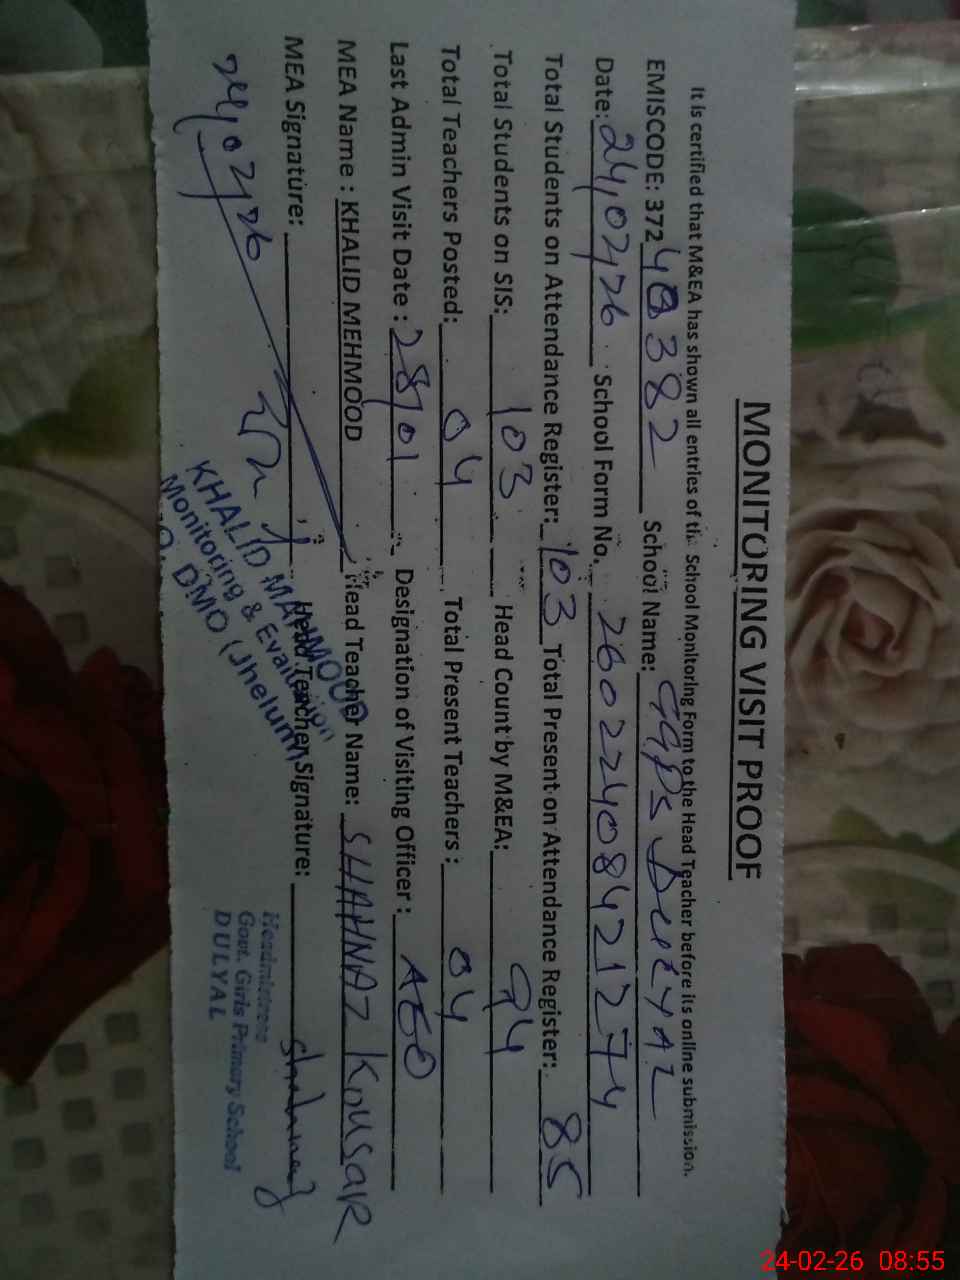 MONITORING VISIT PROOF
It is certified that M&EA has shown all entries of the School Monitoring Form to the Head Teacher before its online submission.
EMISCODE: 37240382 School Name: GGPS DULYAL
Date: 24/02/26 School Form No. 26022408421274
Total Students on Attendance Register: 103 Total Present on Attendance Register: 85
Total Students on SIS: 103 Head Count by M&EA: 94
Total Teachers Posted: 04 Total Present Teachers : 04
Last Admin Visit Date : 28/01 Designation of Visiting Officer : AEO
MEA Name : KHALID MEHMOOD Head Teacher Name: SHAHNAZ KOUSAR
MEA Signature: Head Teacher Signature: Shahnaz
24/02/26
KHALID MAHMOOD
Monitoring & Evaluation
DMO (Jhelum)
Headmistress
Govt. Girls Primary School
DULYAL
24-02-26 08:55